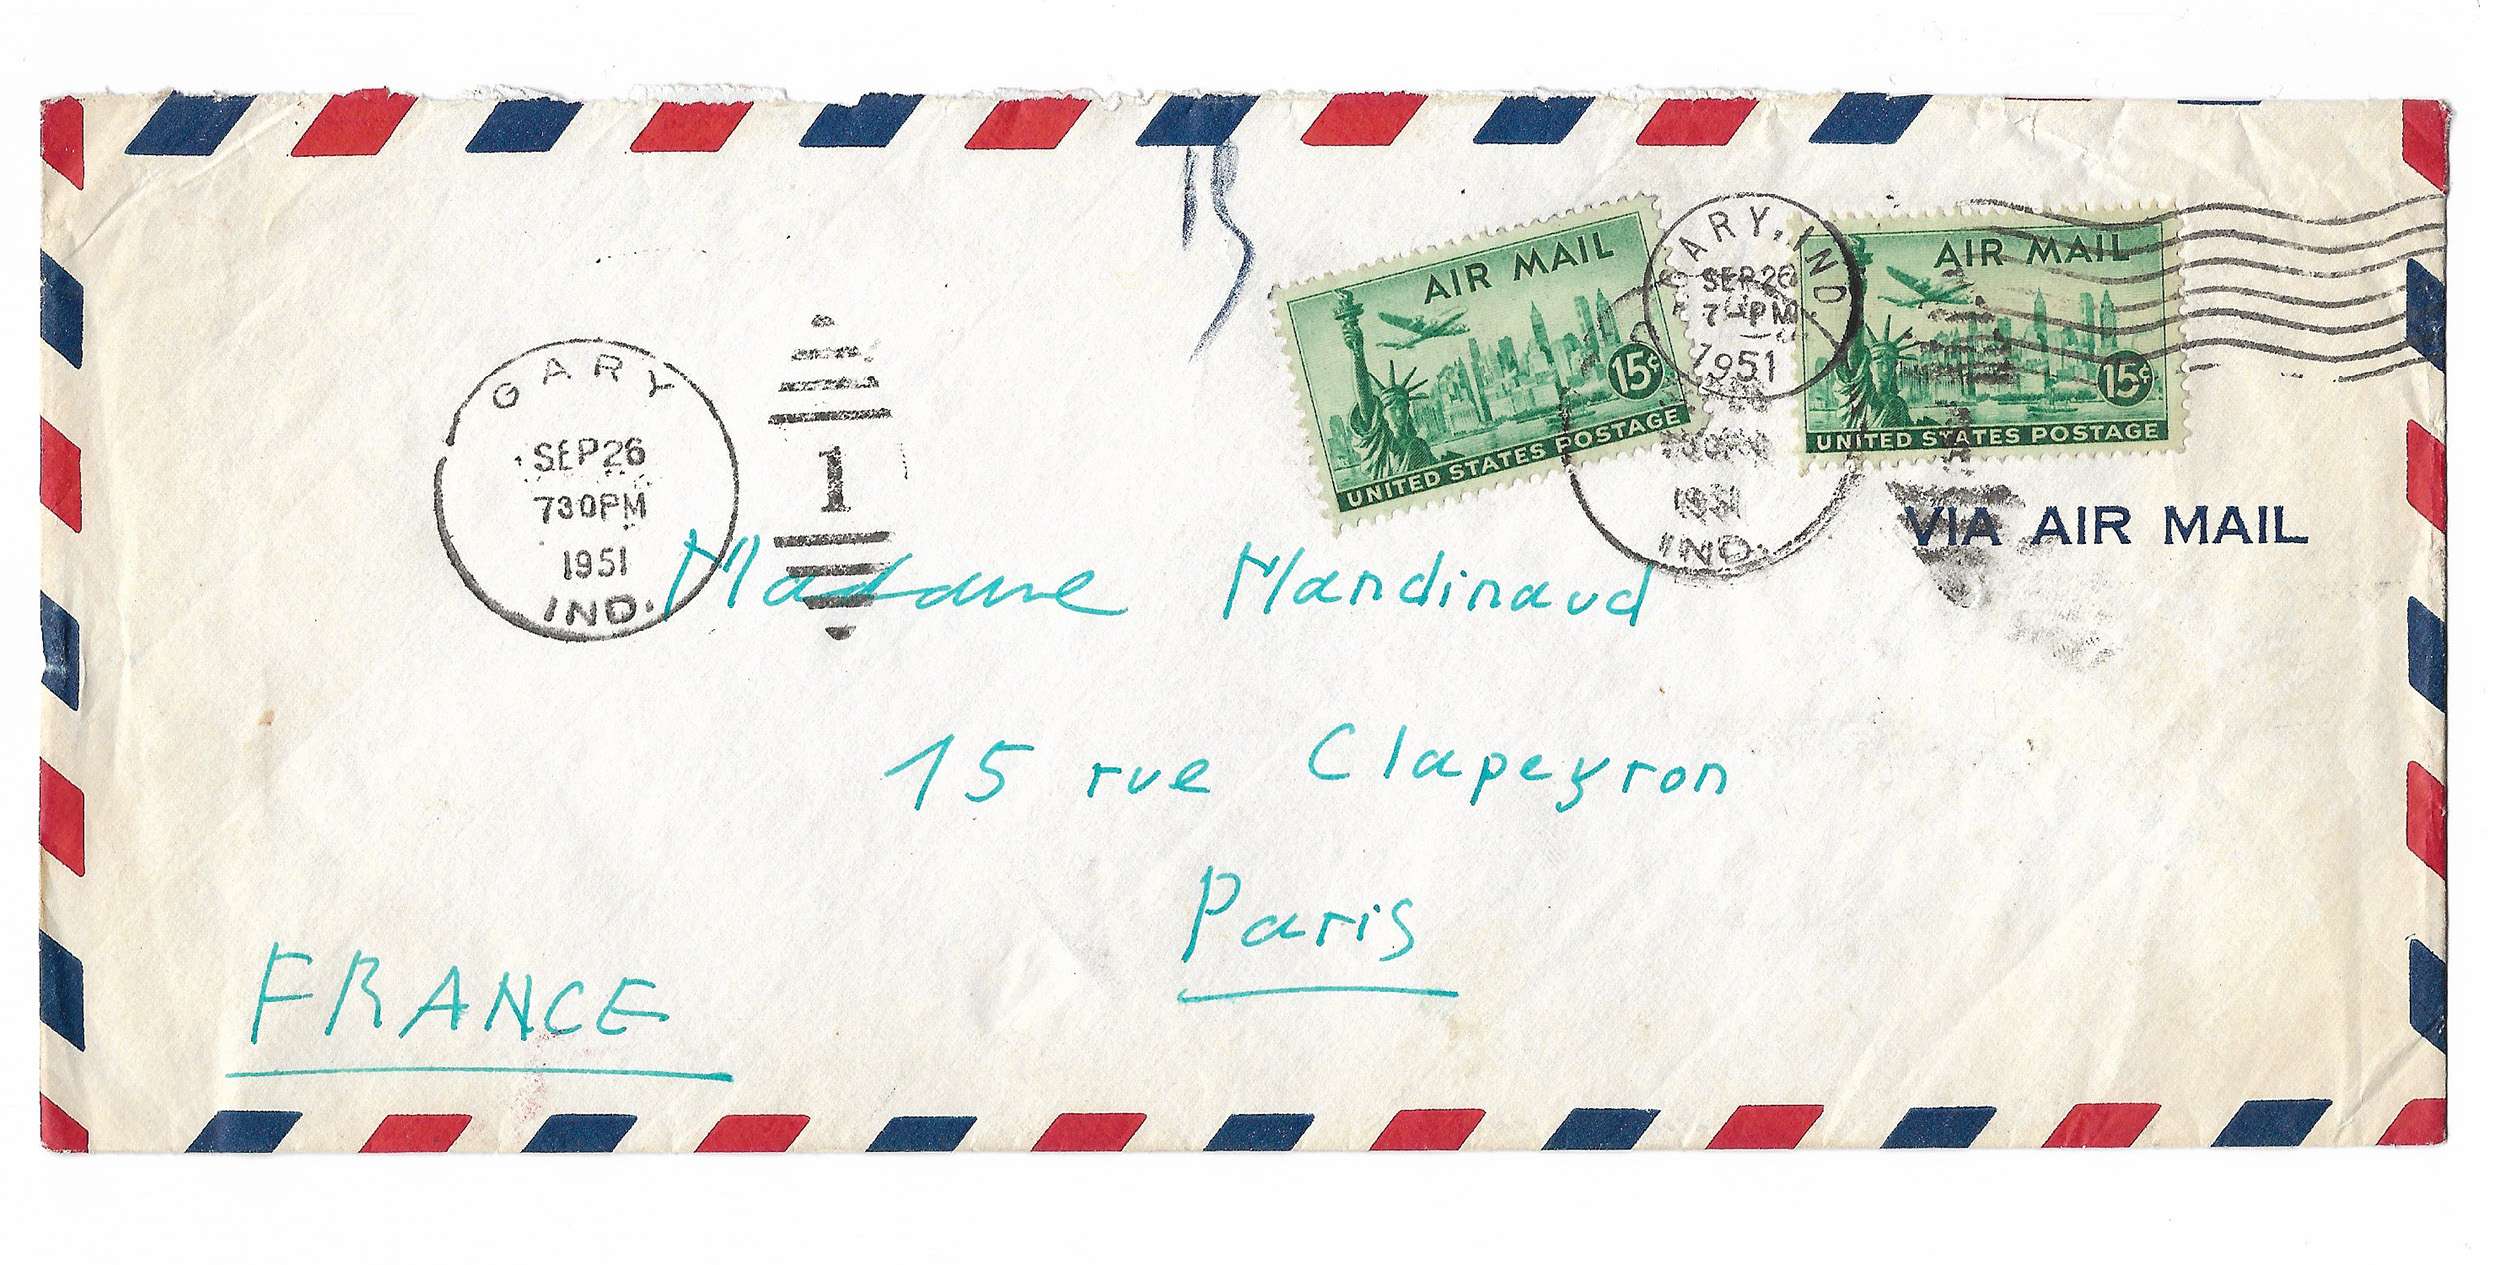 AIR MAIL
15¢
UNITED STATES POSTAGE
AIR MAIL
15¢
UNITED STATES POSTAGE
GARY, IND.
SEP 26
PM
1951
GARY
SEP 26
730PM
1951
IND.
1
1951
IND.
VIA AIR MAIL
Madame Mandinaud
15 rue Clapeyron
Paris
FRANCE